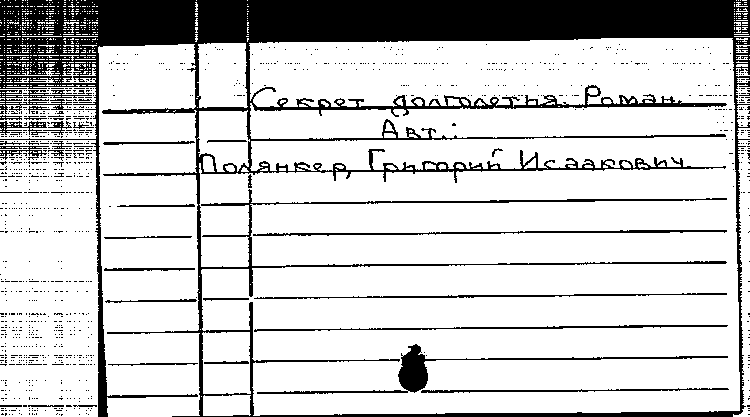 Секрет долголетия. Роман.
Авт.:
Полянкер, Григорий Исаакович.